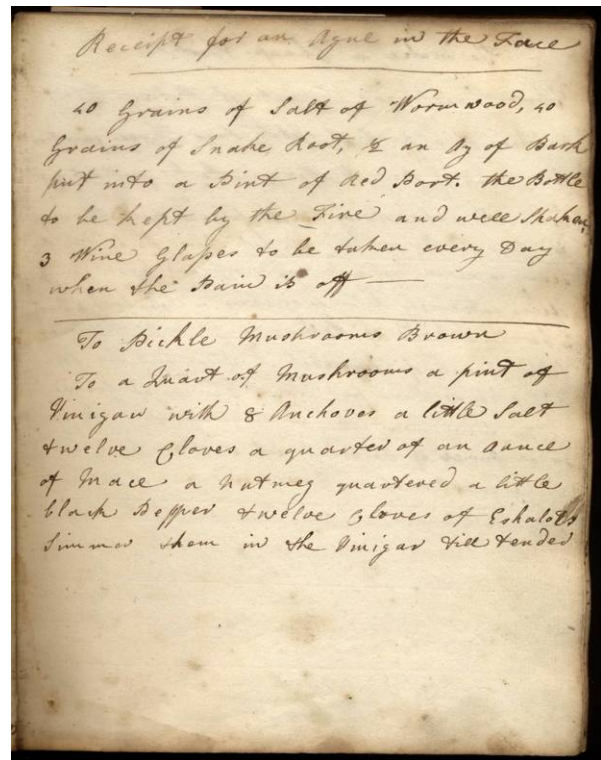 Receipt for an Ague in the Face
40 Grains of Salt of Wormwood, 40
Grains of Snake Root, ½ an Oz of Bark
put into a Pint of Red Port. the Bottle
to be kept by the Fire and well Shaken,
3 Wine Glasses to be taken every Day
when the Pain is off —
To Pickle Mushrooms Brown
To a Quart of Mushrooms a pint of
Vinigar with 8 Anchoves a little Salt
twelve Cloves a quarter of an ounce
of Mace a Nutmeg quartered a little
black Pepper twelve Cloves of Eshalots
Simmer them in the Vinigar till tender